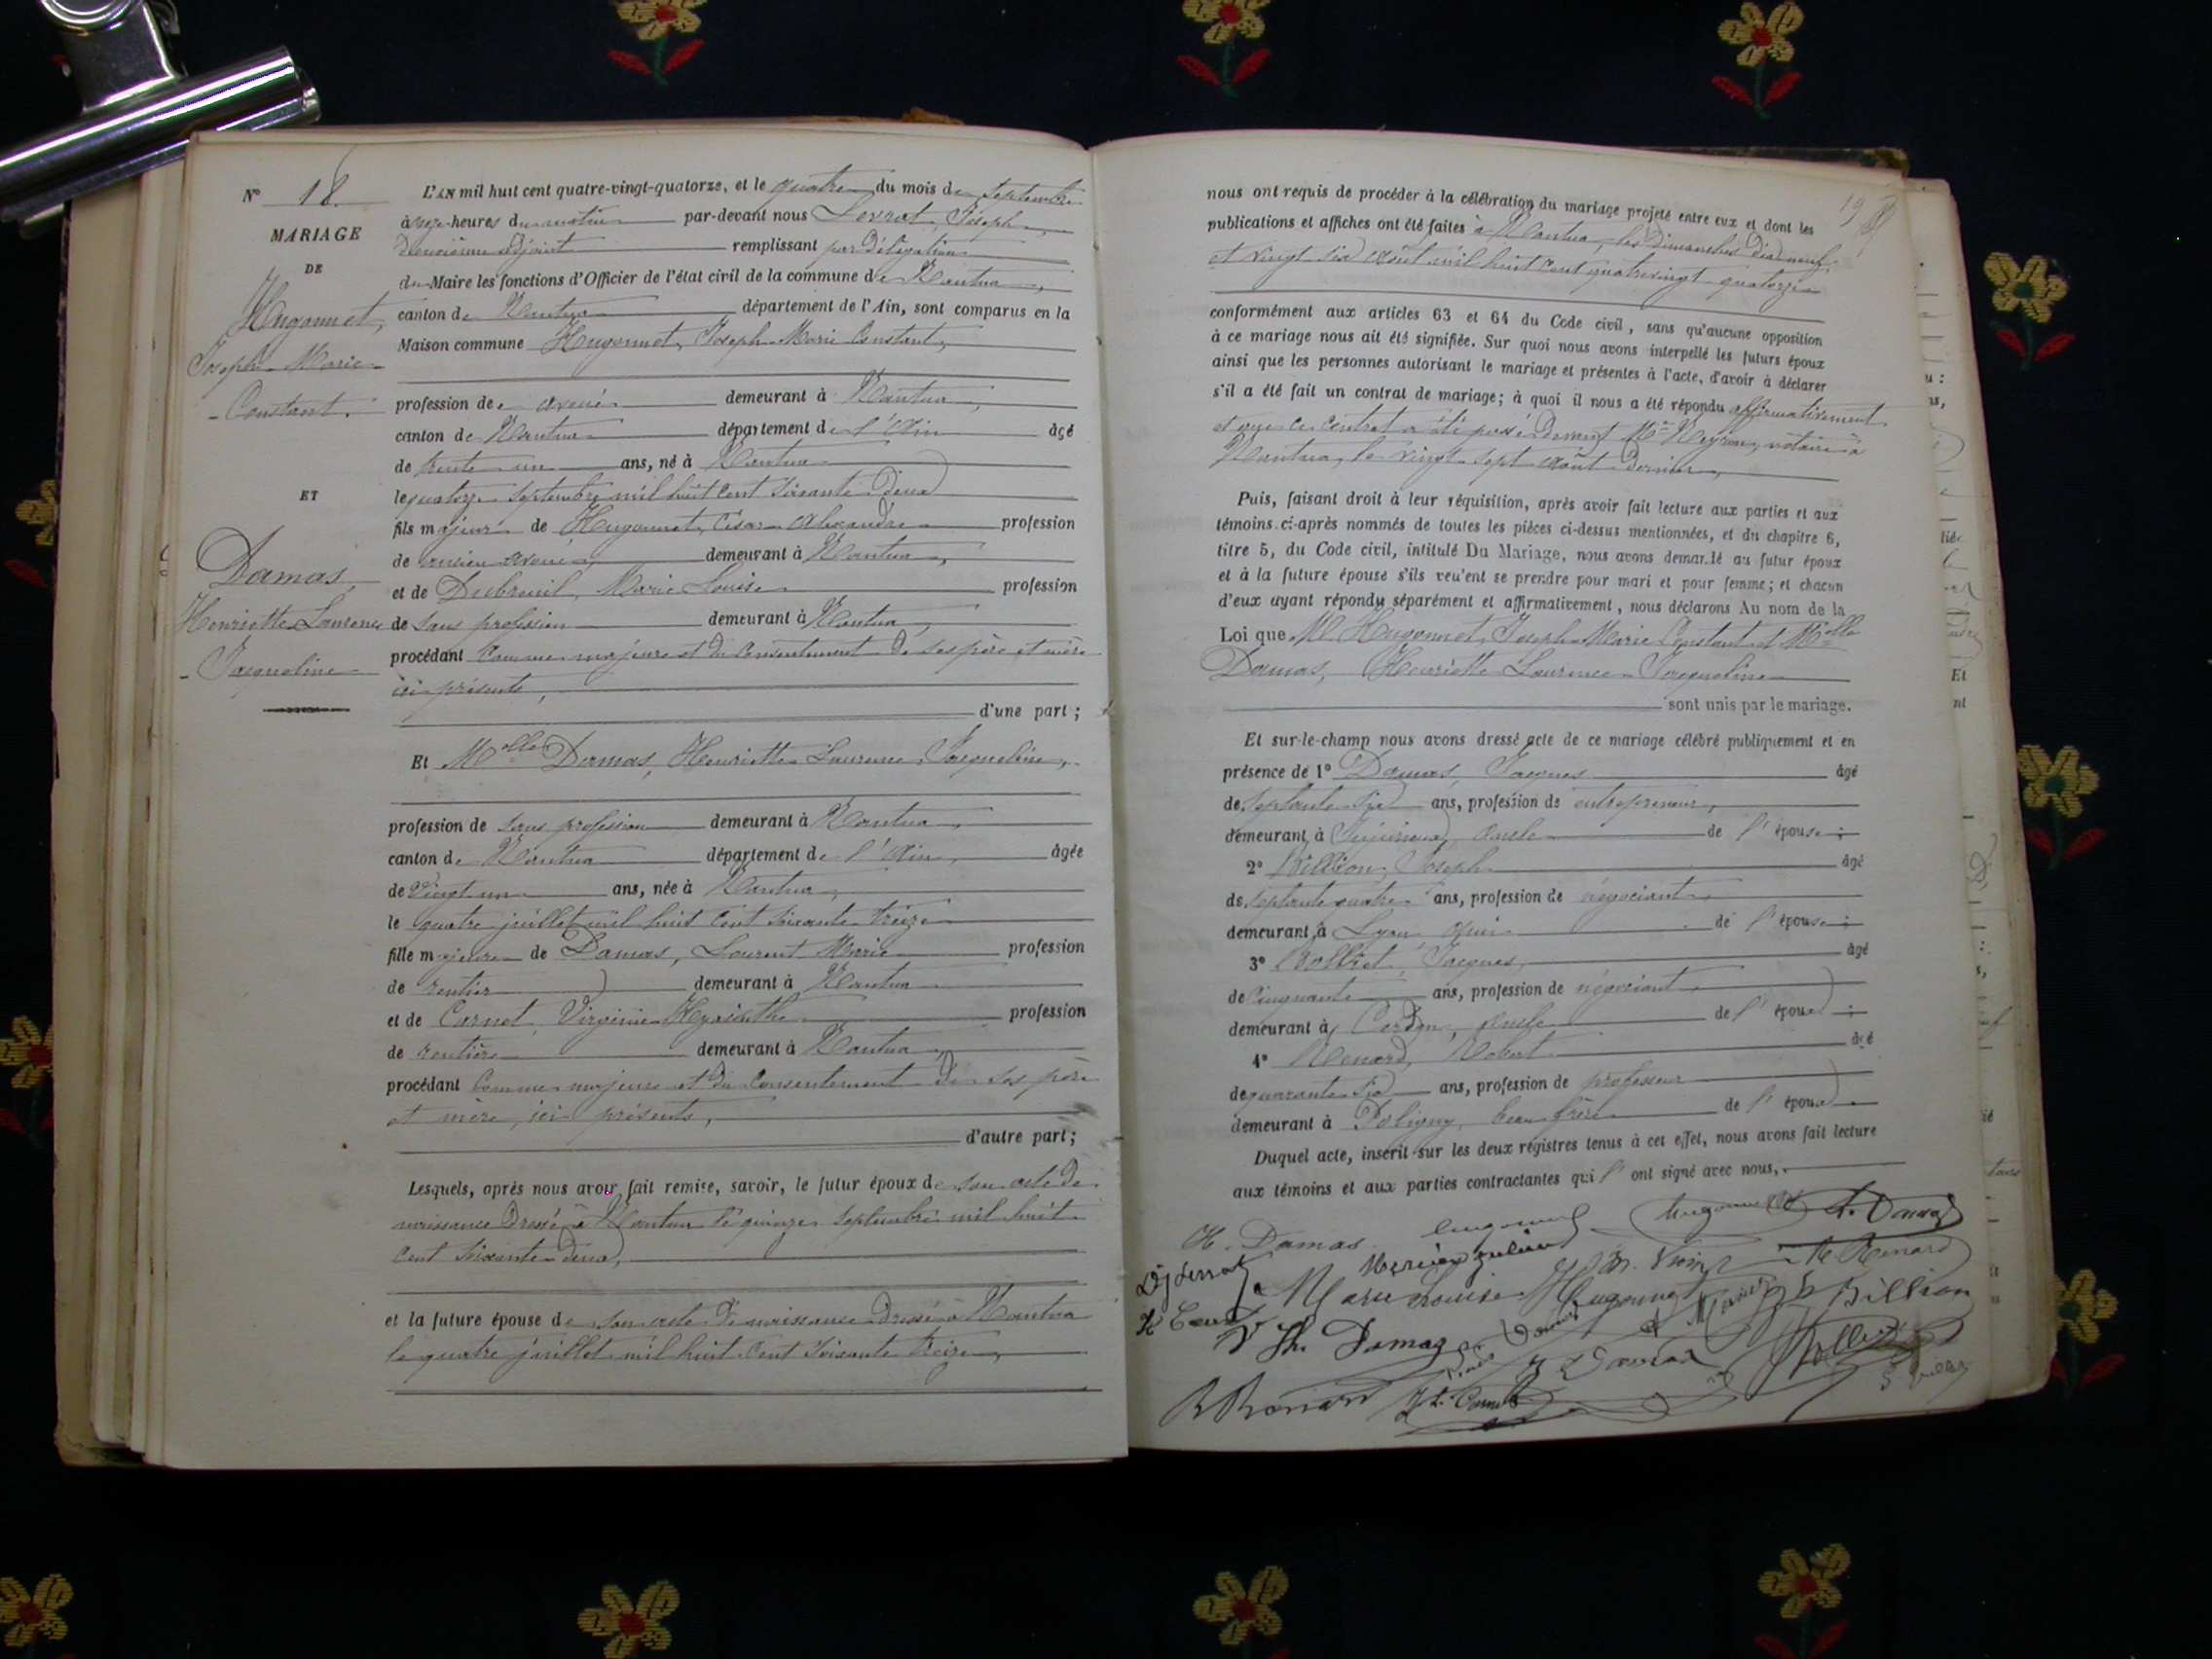 N° 18
MARIAGE
DE
Hugonnet,
Joseph Marie
Constant.
ET
Damas,
Henriette Laurence
Jacqueline
L'AN mil huit cent quatre-vingt-quatorze, et le quatre du mois de septembre
à onze heures du matin par-devant nous Levrat, Joseph,
Deuxième adjoint remplissant par délégation
du Maire les fonctions d'Officier de l'état civil de la commune de Nantua,
canton de Nantua département de l'Ain, sont comparus en la
Maison commune Hugonnet, Joseph Marie Constant,
profession de avoué demeurant à Nantua,
canton de Nantua département de l'Ain âgé
de trente un ans, né à Nantua
le quatorze septembre mil huit cent soixante deux
fils majeur de Hugonnet, César Alexandre profession
de ancien avoué, demeurant à Nantua,
et de Dubreuil, Marie Louise profession
de sans profession demeurant à Nantua,
procédant comme majeur et du consentement de ses père et mère
ici présents,
d'une part ;
Et Melle Damas, Henriette Laurence Jacqueline,
profession de sans profession demeurant à Nantua,
canton de Nantua département de l'Ain, âgée
de vingt un ans, née à Nantua,
le quatre juillet mil huit cent soixante treize
fille majeure de Damas, Laurent Marie profession
de rentier demeurant à Nantua
et de Carnet, Virginie Hyacinthe profession
de rentière demeurant à Nantua,
procédant comme majeure et du consentement de ses père
et mère, ici présents,
d'autre part ;
Lesquels, après nous avoir fait remise, savoir, le futur époux de son acte de
naissance dressé à Nantua le quinze septembre mil huit
cent soixante deux,
et la future épouse de son acte de naissance dressé à Nantua
le quatre juillet mil huit cent soixante treize,
19
nous ont requis de procéder à la célébration du mariage projeté entre eux et dont les
publications et affiches ont été faites à Nantua, les dimanches dix neuf
et vingt six août mil huit cent quatrevingt quatorze
conformément aux articles 63 et 64 du Code civil, sans qu'aucune opposition
à ce mariage nous ait été signifiée. Sur quoi nous avons interpellé les futurs époux
ainsi que les personnes autorisant le mariage et présentes à l'acte, d'avoir à déclarer
s'il a été fait un contrat de mariage ; à quoi il nous a été répondu affirmativement
et que ce contrat a été passé devant Me Neyron, notaire à
Nantua, le vingt sept août dernier,
Puis, faisant droit à leur réquisition, après avoir fait lecture aux parties et aux
témoins ci-après nommés de toutes les pièces ci-dessus mentionnées, et du chapitre 6,
titre 5, du Code civil, intitulé Du Mariage, nous avons demandé au futur époux
et à la future épouse s'ils veulent se prendre pour mari et pour femme ; et chacun
d'eux ayant répondu séparément et affirmativement, nous déclarons Au nom de la
Loi que M. Hugonnet, Joseph Marie Constant et Melle
Damas, Henriette Laurence Jacqueline
sont unis par le mariage.
Et sur-le-champ nous avons dressé acte de ce mariage célébré publiquement et en
présence de 1° Damas, Jacques âgé
de septante six ans, profession de entrepreneur,
demeurant à oncle de l'épouse ;
2° Billion, Joseph âgé
de septante quatre ans, profession de négociant
demeurant à Lyon ami de l'épouse ;
3° Bolliet, Jacques, âgé
de cinquante ans, profession de négociant
demeurant à Cerdon, oncle de l'époux ;
4° Renard, Robert âgé
de quarante six ans, profession de professeur
demeurant à Poligny, beau frère de l'époux
Duquel acte, inscrit sur les deux registres tenus à cet effet, nous avons fait lecture
aux témoins et aux parties contractantes qui l'ont signé avec nous,
H. Damas Hugonnet L. Damas
R. Renard
Marie Louise Hugonnet Billion
Damas
J. Damas Bolliet
R Renard Carnet